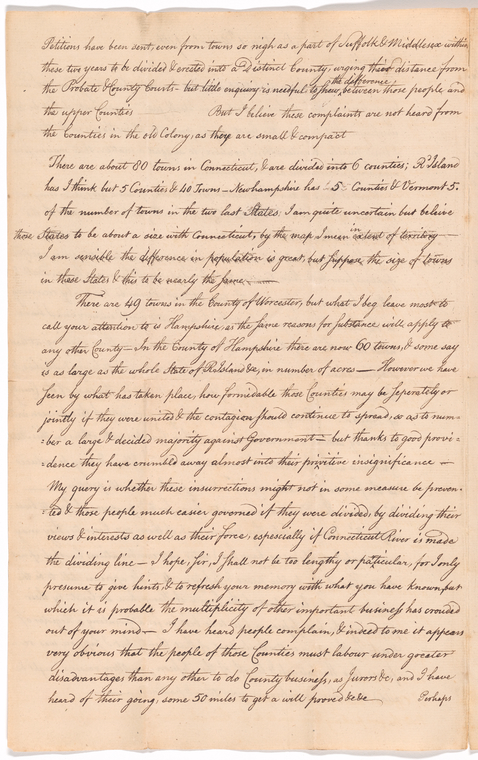 Petitions have been sent, even from towns so nigh as a part of Suffolk & Middlesex within
these two years to be divided & erected into a Distinct County, urging their distance from
the Probate & County Courts - but little enquiry is needful to shew, the difference between those people and
the upper Counties But I believe these complaints are not heard from
the Counties in the old Colony, as they are small & compact
There are about 80 towns in Connecticut, & are divided into 6 counties; Rd Island
has I think but 5 Counties & 40 Towns - Newhampshire has 5 Counties & Vermont 5.
of the number of towns in the two last States, I am quite uncertain but believe
those States to be about a size with Connecticut, by the map, I mean in extent of territory -
I am sensible the difference in population is great, but suppose the size of towns
in these States & this to be nearly the same. -
There are 49 towns in the County of Worcester, but what I beg leave most to
call your attention to is Hampshire, as the same reasons for substance will apply to
any other County - In the County of Hampshire there are now 60 towns, & some say
is as large as the whole State of Rd Island &c, in number of acres - However we have
seen by what has taken place, how formidable those Counties may be seperately or
jointly if they were united & the contagion should continue to spread, so as to num-
ber a large & decided majority against Government - but thanks to good provi-
:dence they have crumbled away almost into their privitive insignificance -
My query is whether these insurrections might not in some measure be preven-
:ted & those people much easier governed if they were divided, by dividing their
views & interests as well as their force, espescially if Connecticut River is made
the dividing line - I hope, Sir, I shall not be too lengthy or paticular, for I only
presume to give hints, & to refresh your memory with what you have known, but
which it is probable the multiplicity of other important business has crouded
out of your mind - I have heard people complain, & indeed to me it appears
very obvious that the people of those Counties must labour under greater
disadvantages than any other to do County business, as Jurors &c, and I have
heard of their going, some 50 miles to get a will proved &c &c Perhaps